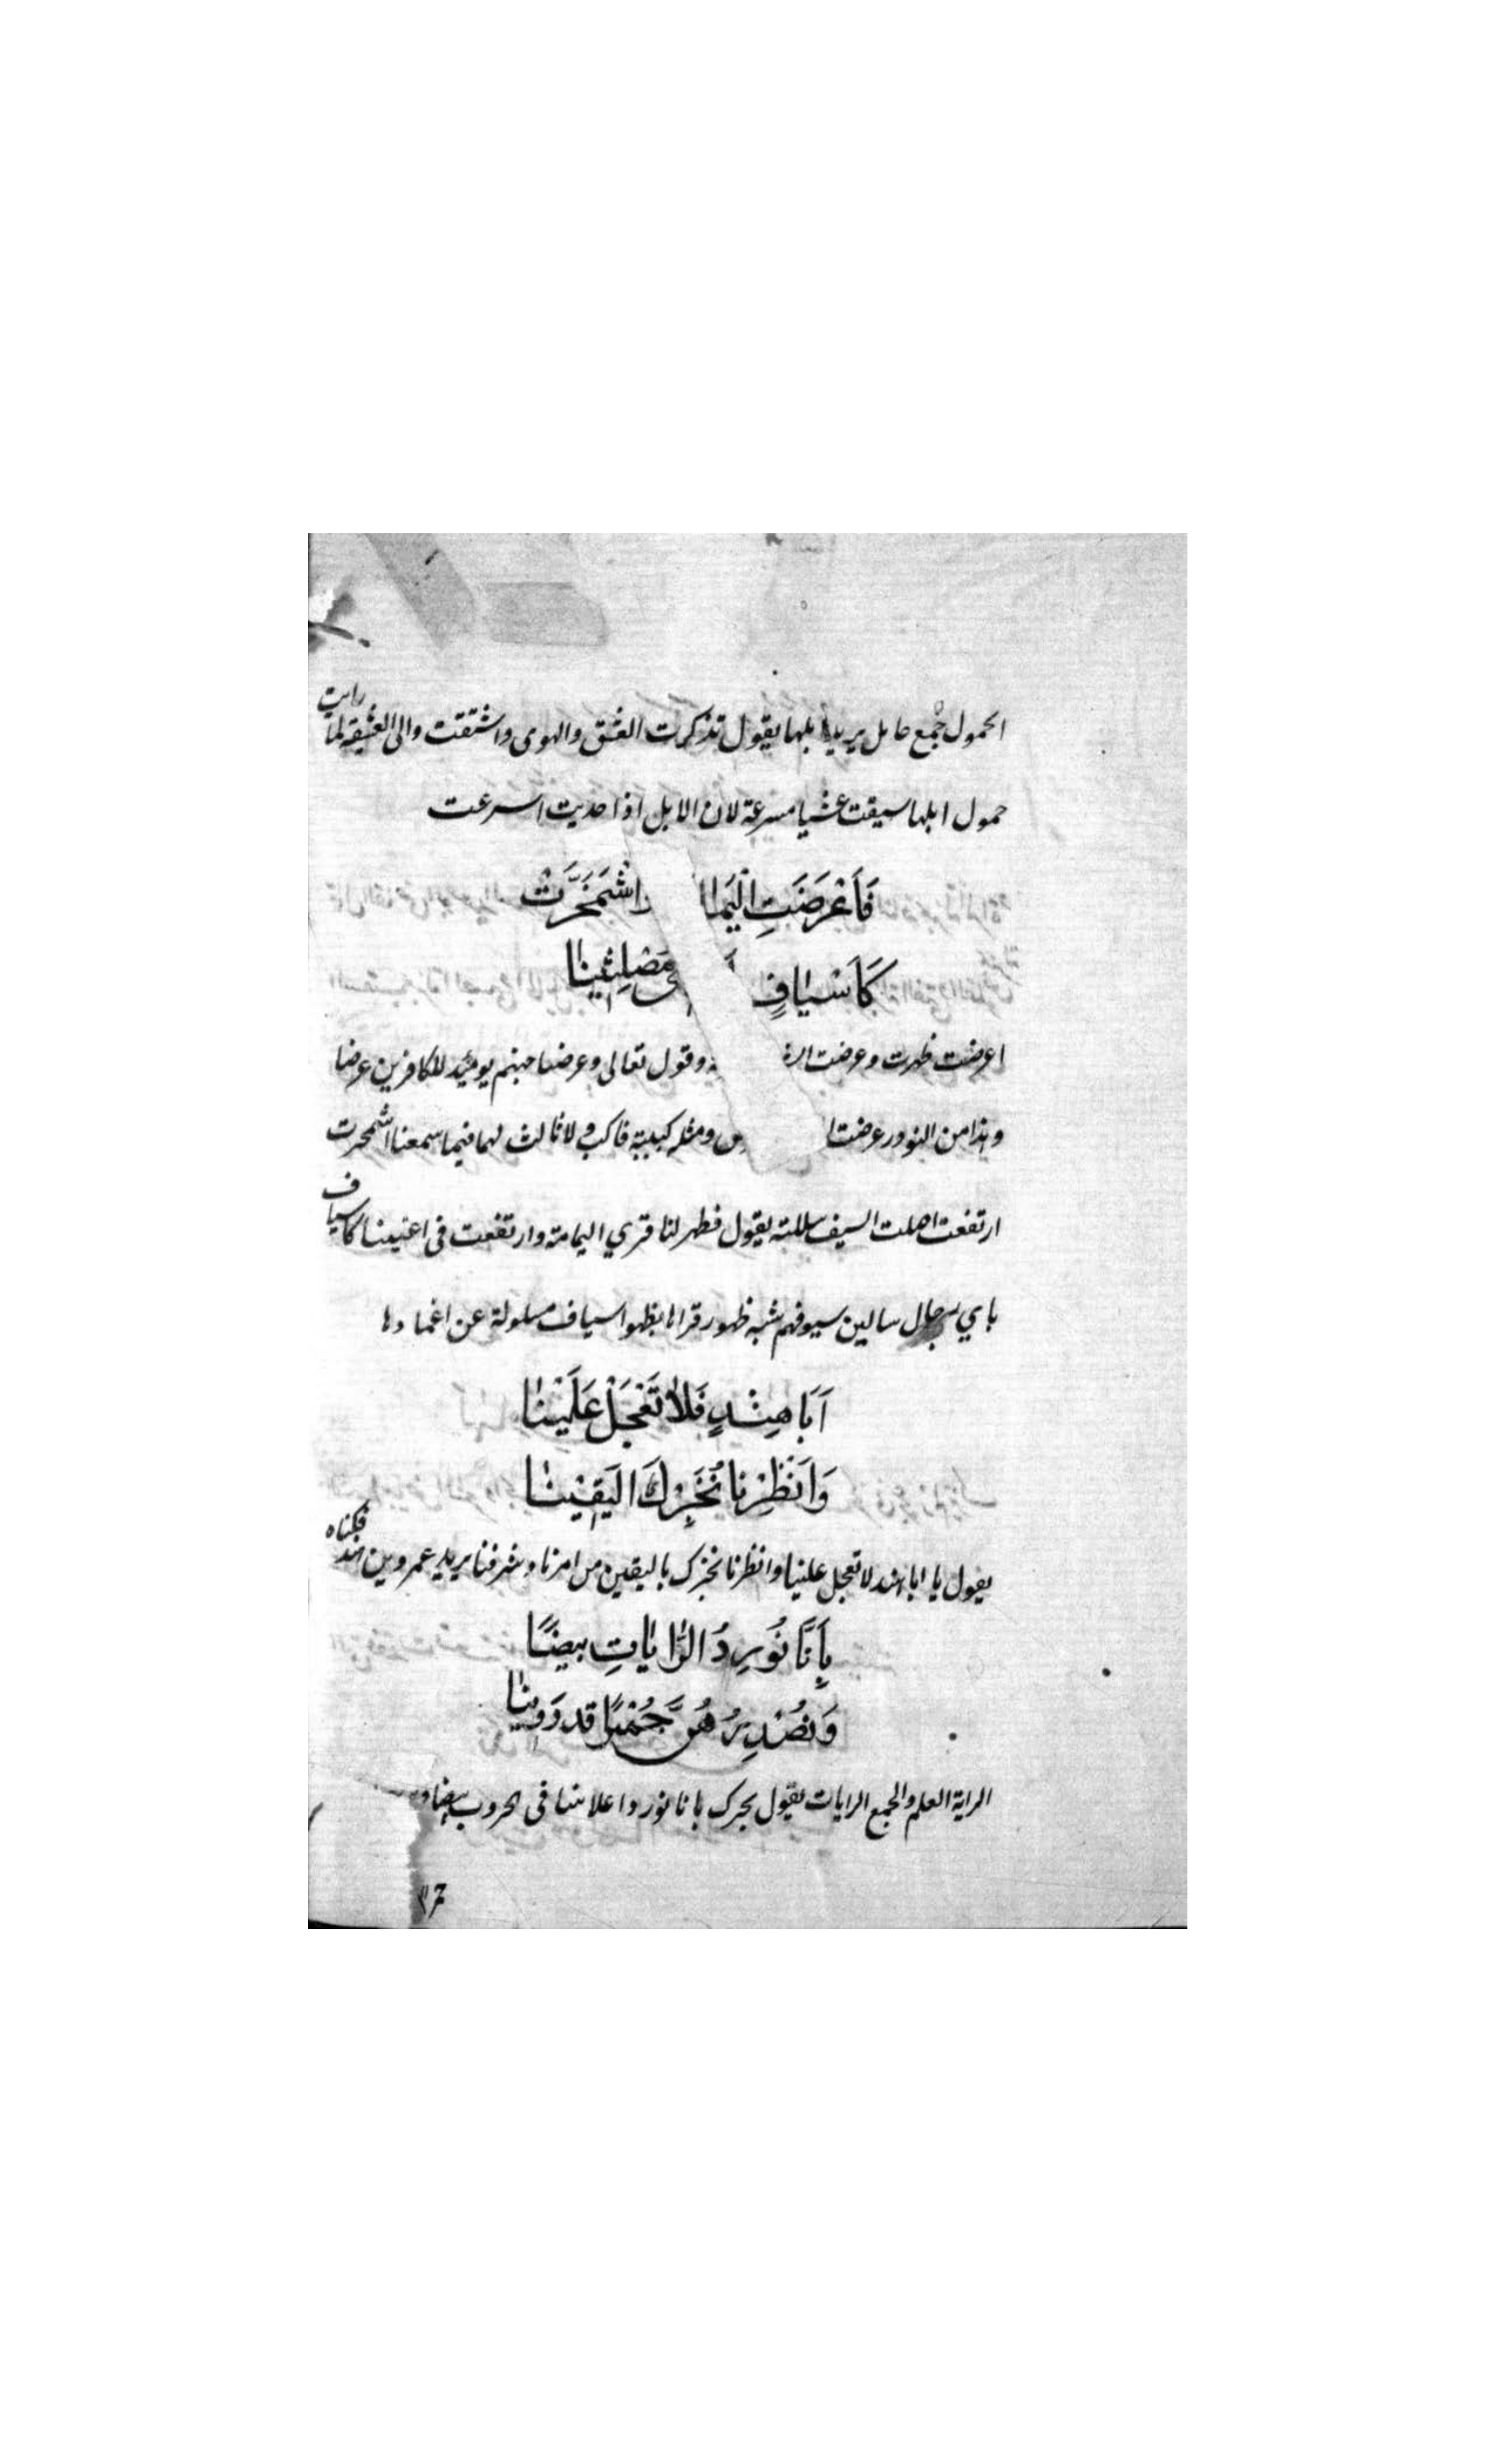 الحمول جمع حامل يريد ابلها يقول تذكرت العشق والهوى واشتقت والى العشيقة لما رايت
حمول ابلها سيقت عشيا مسرعة لان الابل اذا حديت اسرعت
فَاَعْرَضَتِ الْيَما وَاشْمَخَرَّتْ
كَاَسْيافٍ مُصْلِتينا
اعرضت ظهرت وعرضت وقول تعالى وعرضنا جهنم يومئذ للكافرين عرضا
وهذا من النوادر عرضت ومثله كببته فاكب ولا ثالث لهما فيما سمعنا اشمخرت
ارتفعت اصلت السيف سللته يقول فظهر لنا قري اليمامة وارتفعت فى اعيننا كاسياف
باىي رجال سالين سيوفهم شبه ظهور قراها بظهوا سياف مسلولة عن اغمادها
اَبَا هِنْدٍ فَلا تَعْجَلْ عَلَيْنا
وَاَنْظِرْنا نُخَبِّرْكَ الْيَقينا
يقول يا ابا هند لا تعجل علينا وانظرنا نخبرك باليقين من امرنا وشرفنا يريد عمرو بن هند فكناه
بِاَنَّا نُورِدُ الرَّاياتِ بيضًا
وَنُصْدِرُهُنَّ حُمْرًا قد رَوينا
الراية العلم والجمع الرايات يقول نخبرك بانا نورد اعلامنا فى الحروب بيضا